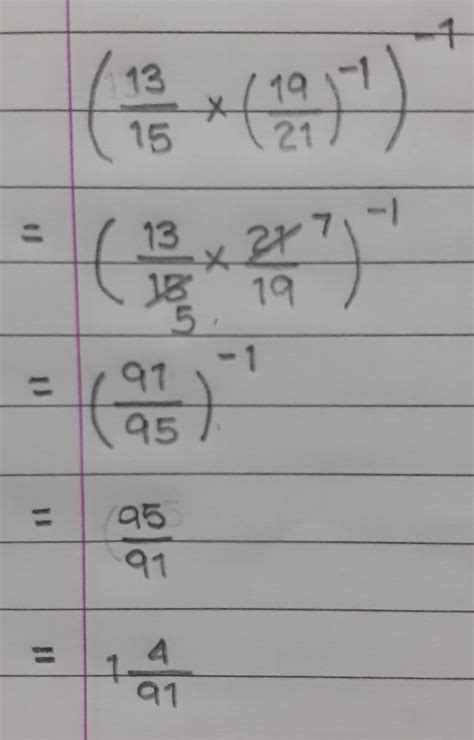 (13/15 × (19/21)⁻¹)⁻¹
= (13/15 5. × 21 7/19)⁻¹
= (91/95)⁻¹
= 95/91
= 1 4/91